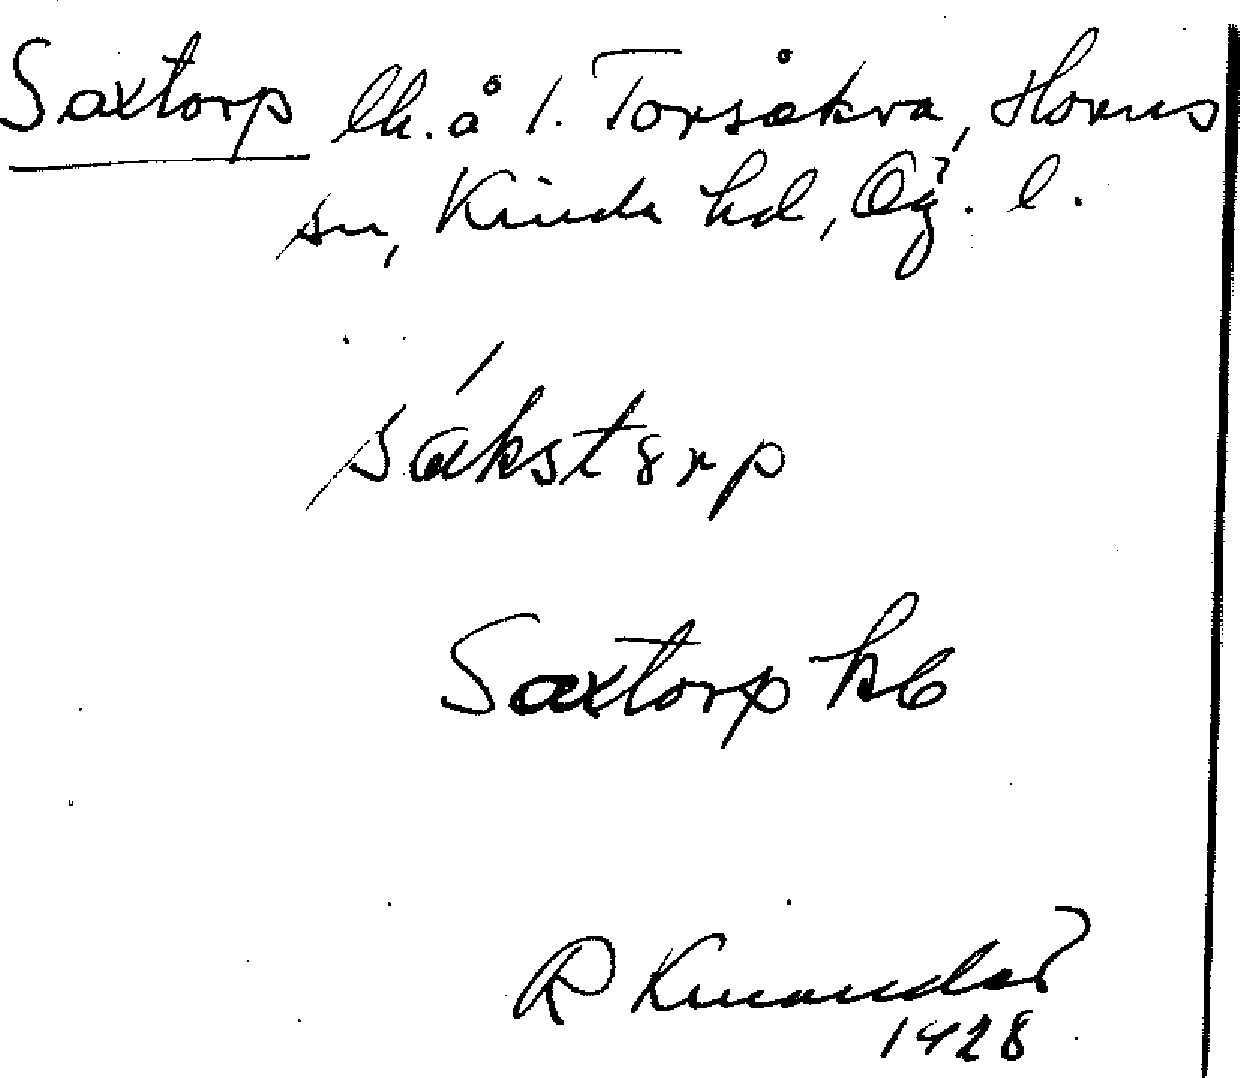 Saxtorp lh. å 1. Torsåkra, Horns
sn, Kinda hd, Ög. l.
sákst8rp
Saxtorp kb
R Kinander
1928